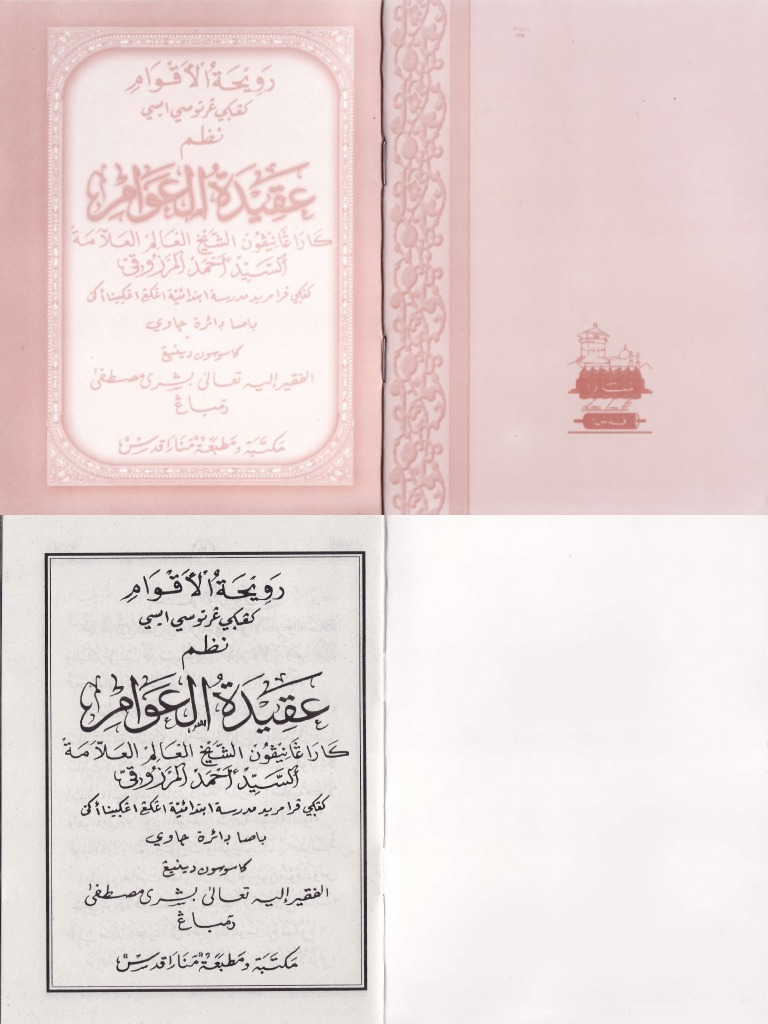 رَوِيْحَةُ الْأَقْوَامِ
كڠكي ڠرتوسي ايسي
نظم
عَقِيْدَةُ الْعَوَامِ
كاراڠانيڤون الشيخ العالم العلامة
السيد أحمد المرزوقي
كڠكي ڤرا مريد مدرسة ابتدائية
باصا دائرة جاوي
كاسوسون دينيڠ
الفقير إليه تعالى بشرى مصطفى
رمباڠ
مكتبة ومطبعة منارا قدس
منارا
قدس
رَوِيْحَةُ الْأَقْوَامِ
كڠكي ڠرتوسي ايسي
نظم
عَقِيْدَةُ الْعَوَامِ
كاراڠانيڤون الشيخ العالم العلامة
السيد أحمد المرزوقي
كڠكي ڤرا مريد مدرسة ابتدائية
باصا دائرة جاوي
كاسوسون دينيڠ
الفقير إليه تعالى بشرى مصطفى
رمباڠ
مكتبة ومطبعة منارا قدس